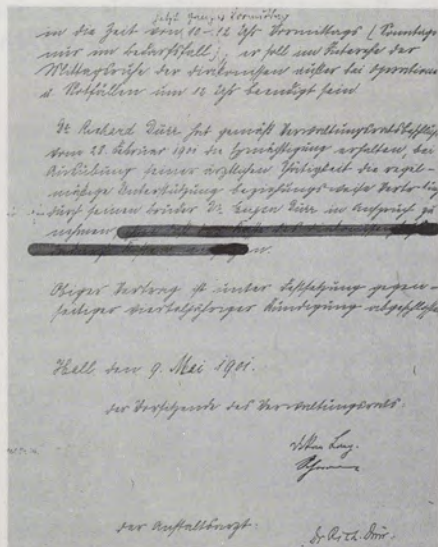 jetzt ganzer Vormittag
in die Zeit von 10–12 Uhr Vormittags (Sonntags
nur im Bedarfsfall); er soll im Interesse der
Mittagsruhe der Diakonissen außer bei Operationen
u. Notfällen um 12 Uhr beendigt sein.
Dr. Richard Dürr hat gemäß Verwaltungsratsbeschluß
vom 28. Februar 1901 die Ermächtigung erhalten, bei
Ausübung seiner ärztlichen Thätigkeit die regel-
mäßige Unterstützung beziehungsweise Vertretung
durch seinen Bruder Dr. Eugen Dürr in Anspruch zu
nehmen
Obiger Vertrag ist unter Festsetzung gegen-
seitiger vierteljähriger Kündigung abgeschlossen.
Hall den 9. Mai 1901.
Der Vorsitzende des Verwaltungsrats:
Der Anstaltsarzt:
Dr. Rich. Dürr.